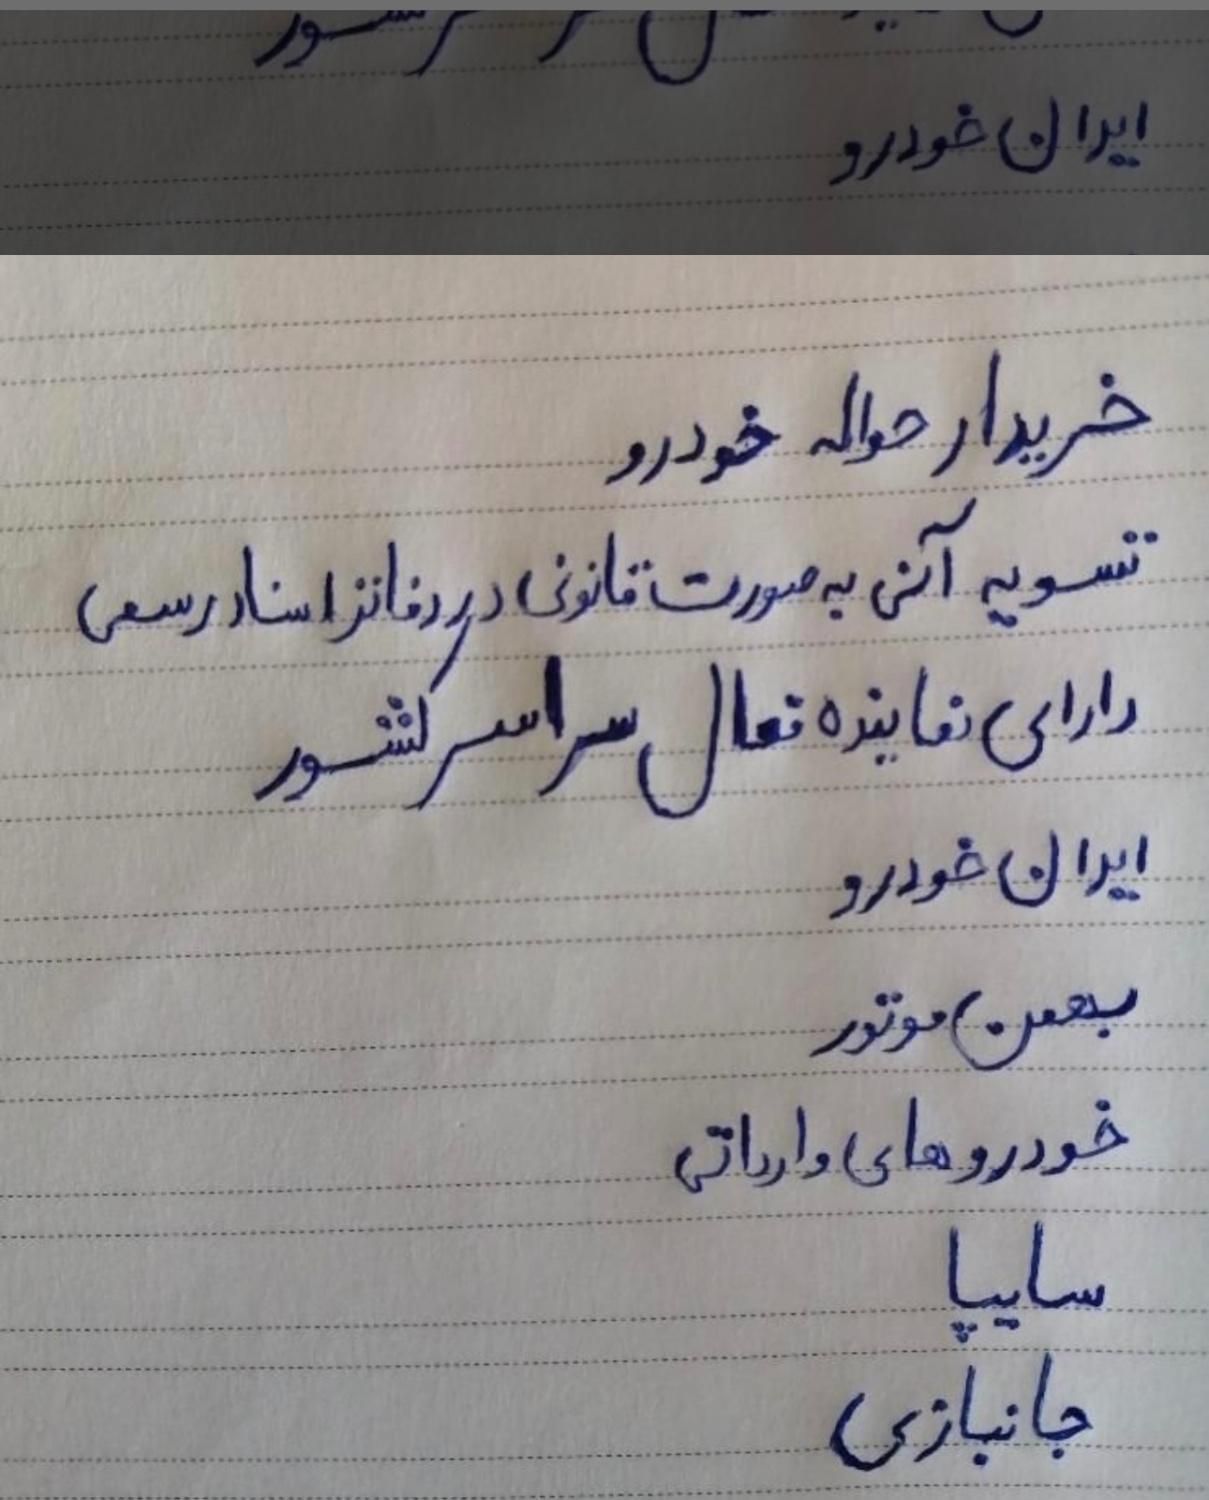 سراسر کشور
ایران خودرو
خریدار حواله خودرو
تسویه آنی به صورت قانونی در دفاتر اسناد رسمی
دارای نماینده فعال سراسر کشور
ایران خودرو
بهمن موتور
خودروهای وارداتی
سایپا
جانبازی